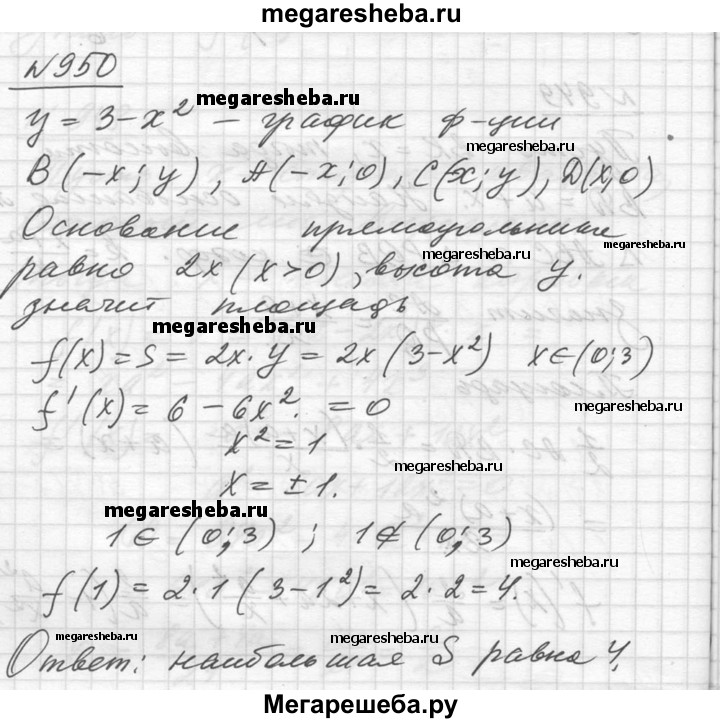 megaresheba.ru
№950
megaresheba.ru
y = 3 - x² – график ф-ции
megaresheba.ru
B(-x; y), A(-x; 0), C(x; y), D(x, 0)
Основание прямоугольника
megaresheba.ru
равно 2x (x>0), высота y.
значит площадь
megaresheba.ru
f(x) = S = 2x · y = 2x (3 - x²) x ∈ (0; 3)
f'(x) = 6 - 6x². = 0
megaresheba.ru
x² = 1
megaresheba.ru
x = ± 1.
megaresheba.ru
1 ∈ (0; 3) ; 1 ∉ (0; 3)
megaresheba.ru
f(1) = 2 · 1 (3 - 1²) = 2 · 2 = 4.
megaresheba.ru megaresheba.ru megaresheba.ru
Ответ: наибольшая S равна 4.
Мегарешеба.ру